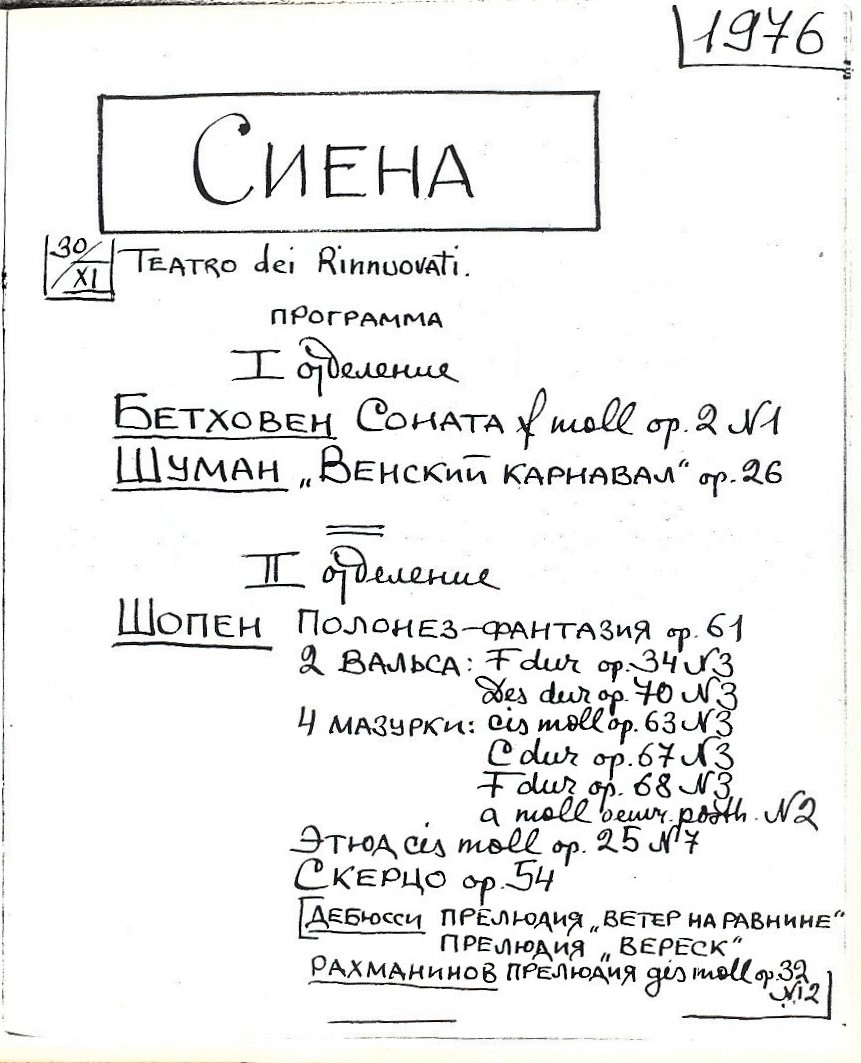 1976
СИЕНА
30/XI TEATRO dei Rinnuovati.
ПРОГРАММА
I отделение
БЕТХОВЕН СОНАТА f moll op. 2 N1
ШУМАН „ВЕНСКИЙ КАРНАВАЛ“ op. 26
II отделение
ШОПЕН ПОЛОНЕЗ-ФАНТАЗИЯ op. 61
2 ВАЛЬСА: F dur op. 34 N3
Des dur op. 70 N3
4 МАЗУРКИ: cis moll op. 63 N3
C dur op. 67 N3
F dur op. 68 N3
a moll oeuvr. posth. N2
ЭТЮД cis moll op. 25 N7
СКЕРЦО op. 54
ДЕБЮССИ ПРЕЛЮДИЯ „ВЕТЕР НА РАВНИНЕ“
ПРЕЛЮДИЯ „ВЕРЕСК“
РАХМАНИНОВ ПРЕЛЮДИЯ gis moll op. 32
N12